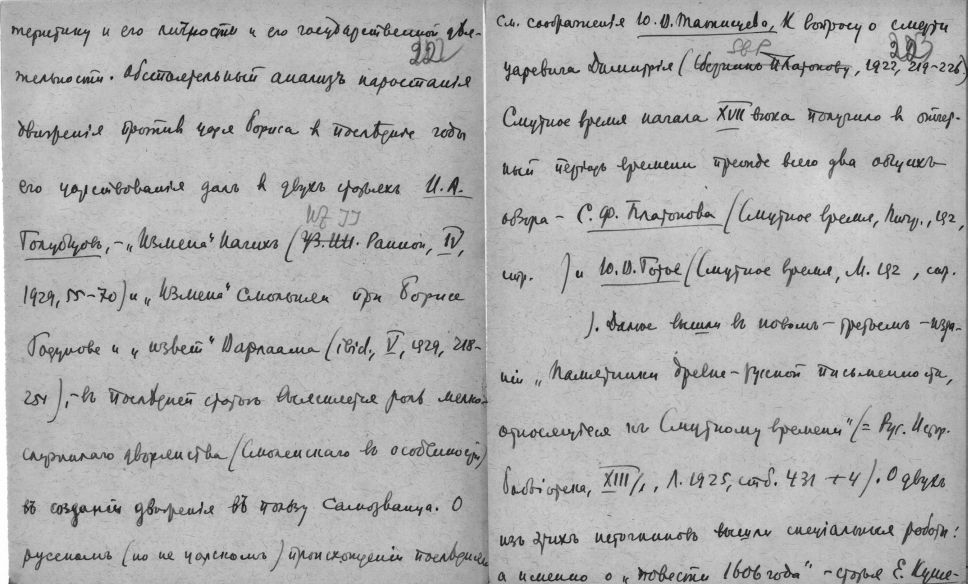 теристику и его личности и его государственной дѣя-
222
тельности. Обстоятельный анализъ наростанія
движенія против царя Бориса в послѣдніе годы
его царствованія далъ в двухъ статьяхъ И. А.
Голубцовъ, – „Измѣна" Нагихъ (Уч. Зап. Ранион, IV,
1929, 55-70) и „Измена" Смольнян при Борисе
Годунове и „извет" Варлаама (ibid., V, 1929, 218-
251), – въ послѣдней статьѣ выясняется роль мелко-
служилаго дворянства (Смоленскаго в особенности)
въ созданіи движенія въ пользу Самозванца. О
русскомъ (но не царскомъ) происхожденіи послѣдняго
см. соображенія Ю. В. Татищева, К вопросу о смерти
223
царевича Димитрія (Сборникъ Платонову, 1922, 219-226)
Смутное время начала XVII вѣка получило в отчет-
ный періодъ времени прежде всего два общихъ
обзора – С. Ф. Платонова (Смутное время, Птгр., 192
стр. ) и Ю. В. Готье (Смутное время, М. 192 , стр.
). Далѣе вышли в новомъ – третьемъ – изда-
ніи „Памятники древне-русской письменности,
относящіеся къ Смутному времени" (= Рус. Истор.
Библіотека, XIII/1, Л. 1925, стб. 431 + 4). О двухъ
изъ этихъ источниковъ вышли спеціальныя работы:
а именно о „Повести 1606 года" – статья Е. Куше-